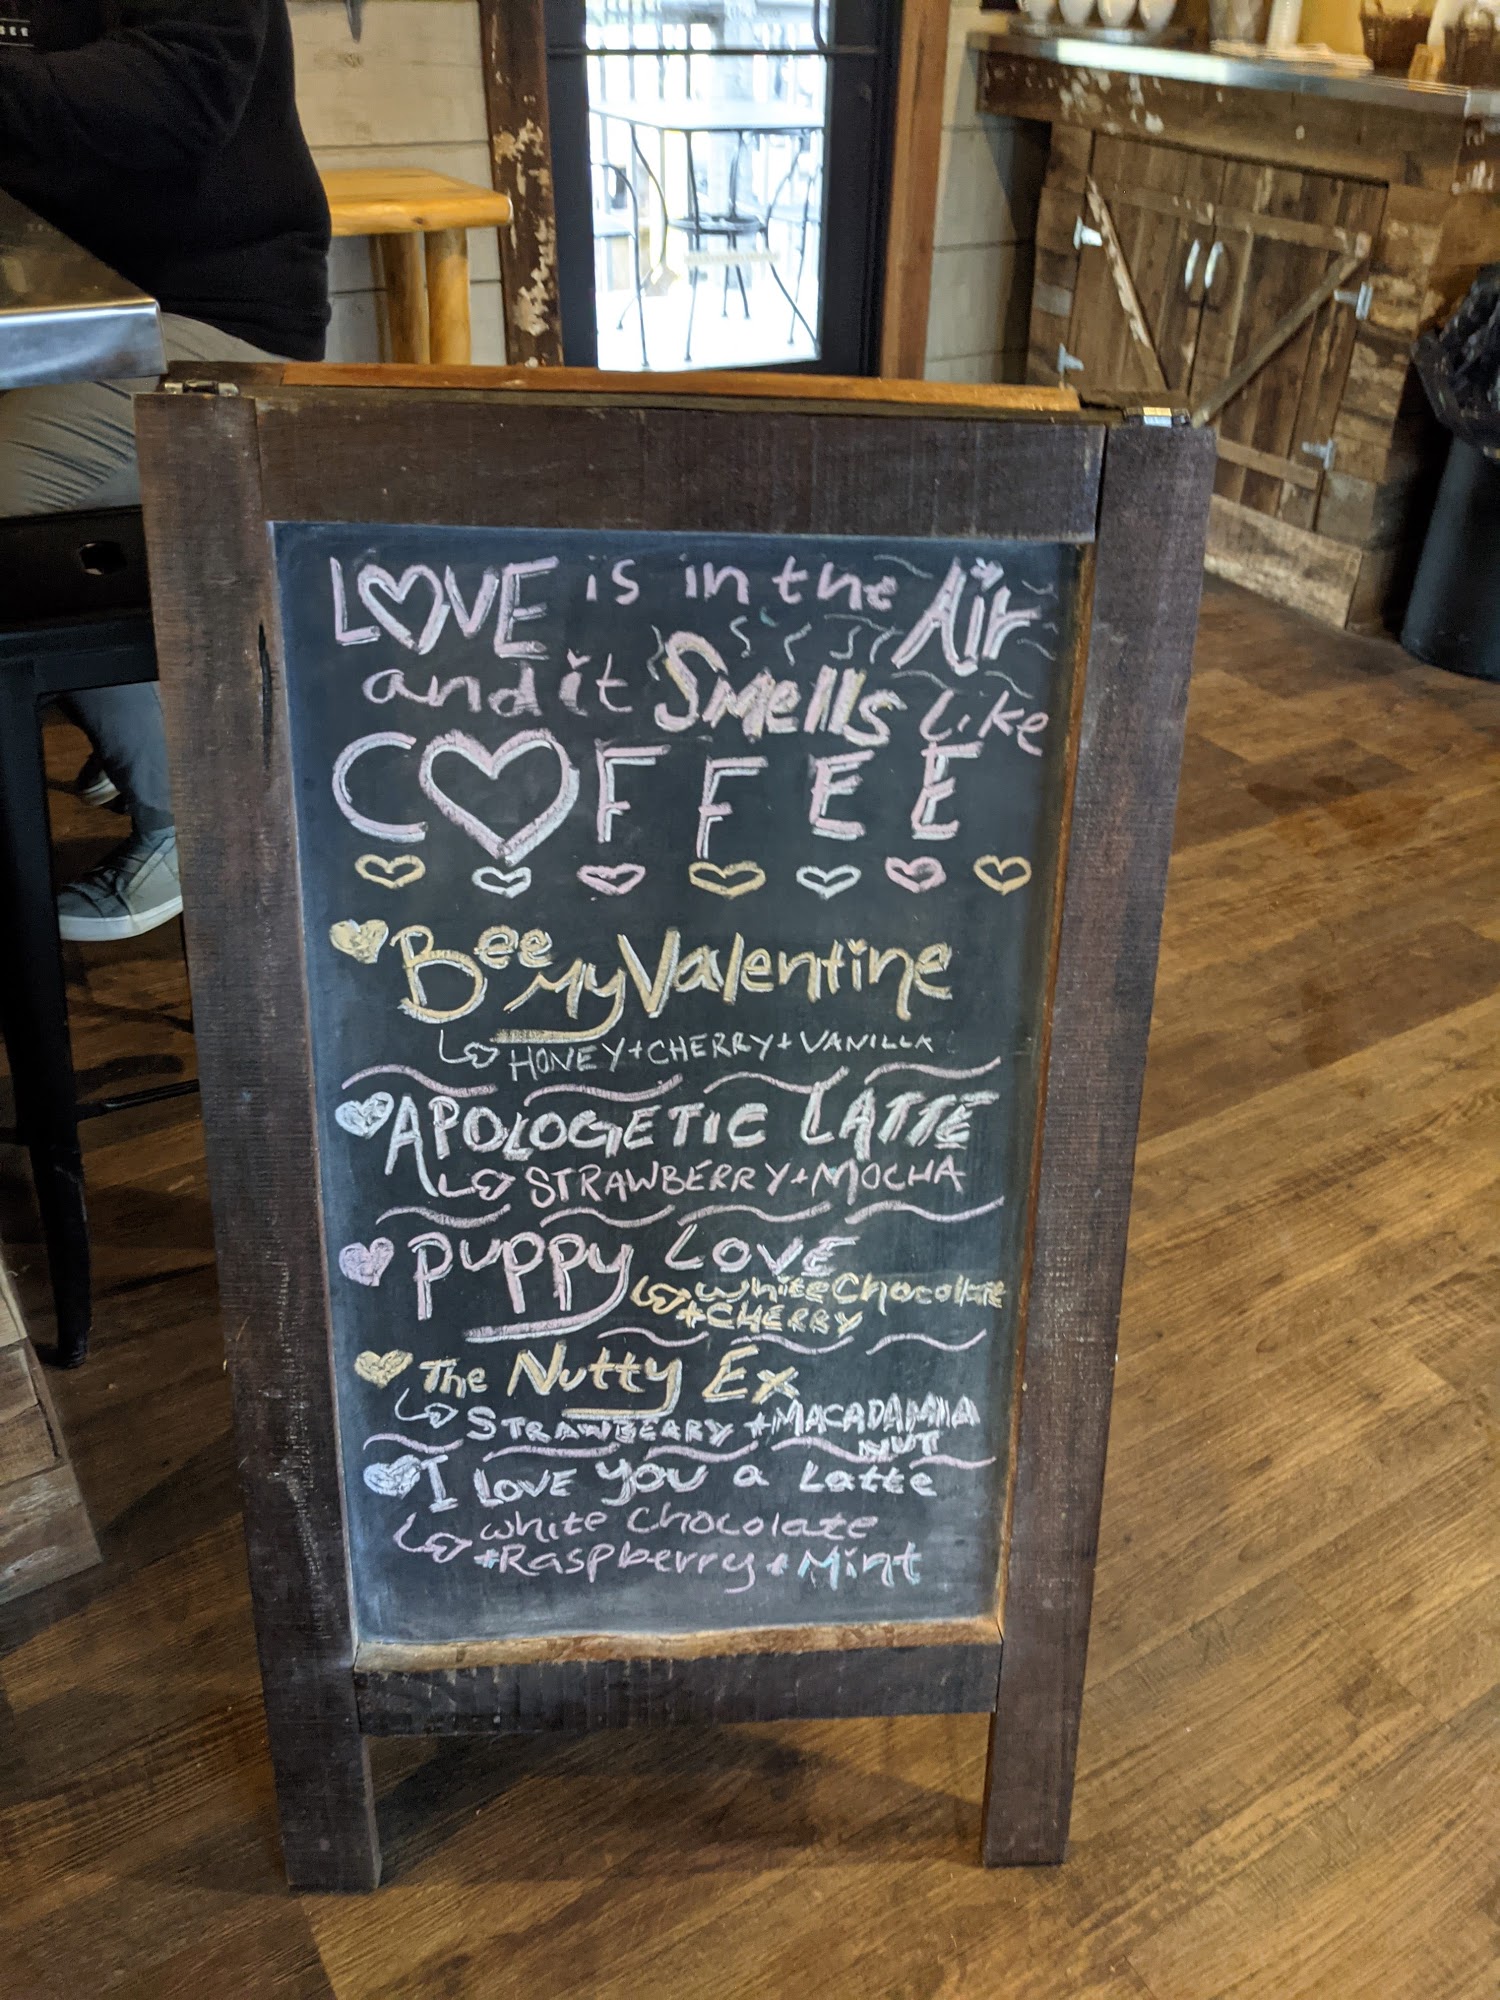 LOVE is in the Air
and it Smells Like
COFFEE
Bee my Valentine
HONEY + CHERRY + VANILLA
APOLOGETIC LATTE
STRAWBERRY + MOCHA
Puppy LOVE
White Chocolate
+ CHERRY
The Nutty Ex
STRAWBERRY + MACADAMIA
NUT
I LOVE YOU a Latte
White Chocolate
+ Raspberry + Mint